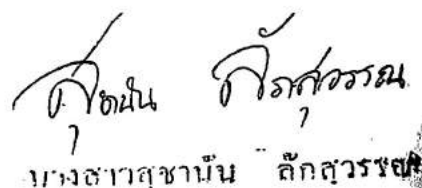 สุชานัน ลักสุวรรณ
นางสาวสุชานัน ลักสุวรรณ